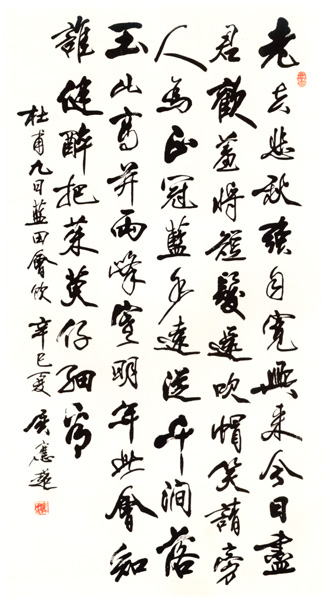 老去悲秋強自寬興來今日盡
君歡羞將短髮還吹帽笑請旁
人為正冠藍水遠從千澗落
玉山高并兩峰寒明年此會知
誰健醉把茱萸仔細看
杜甫九日藍田會飲 辛巳夏